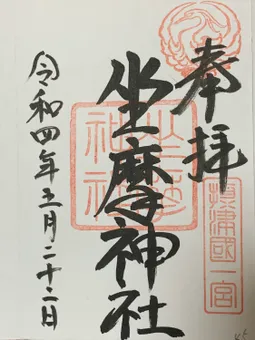 奉拝
摂津國一宮
坐摩神社
坐摩神社
令和四年五月二十二日